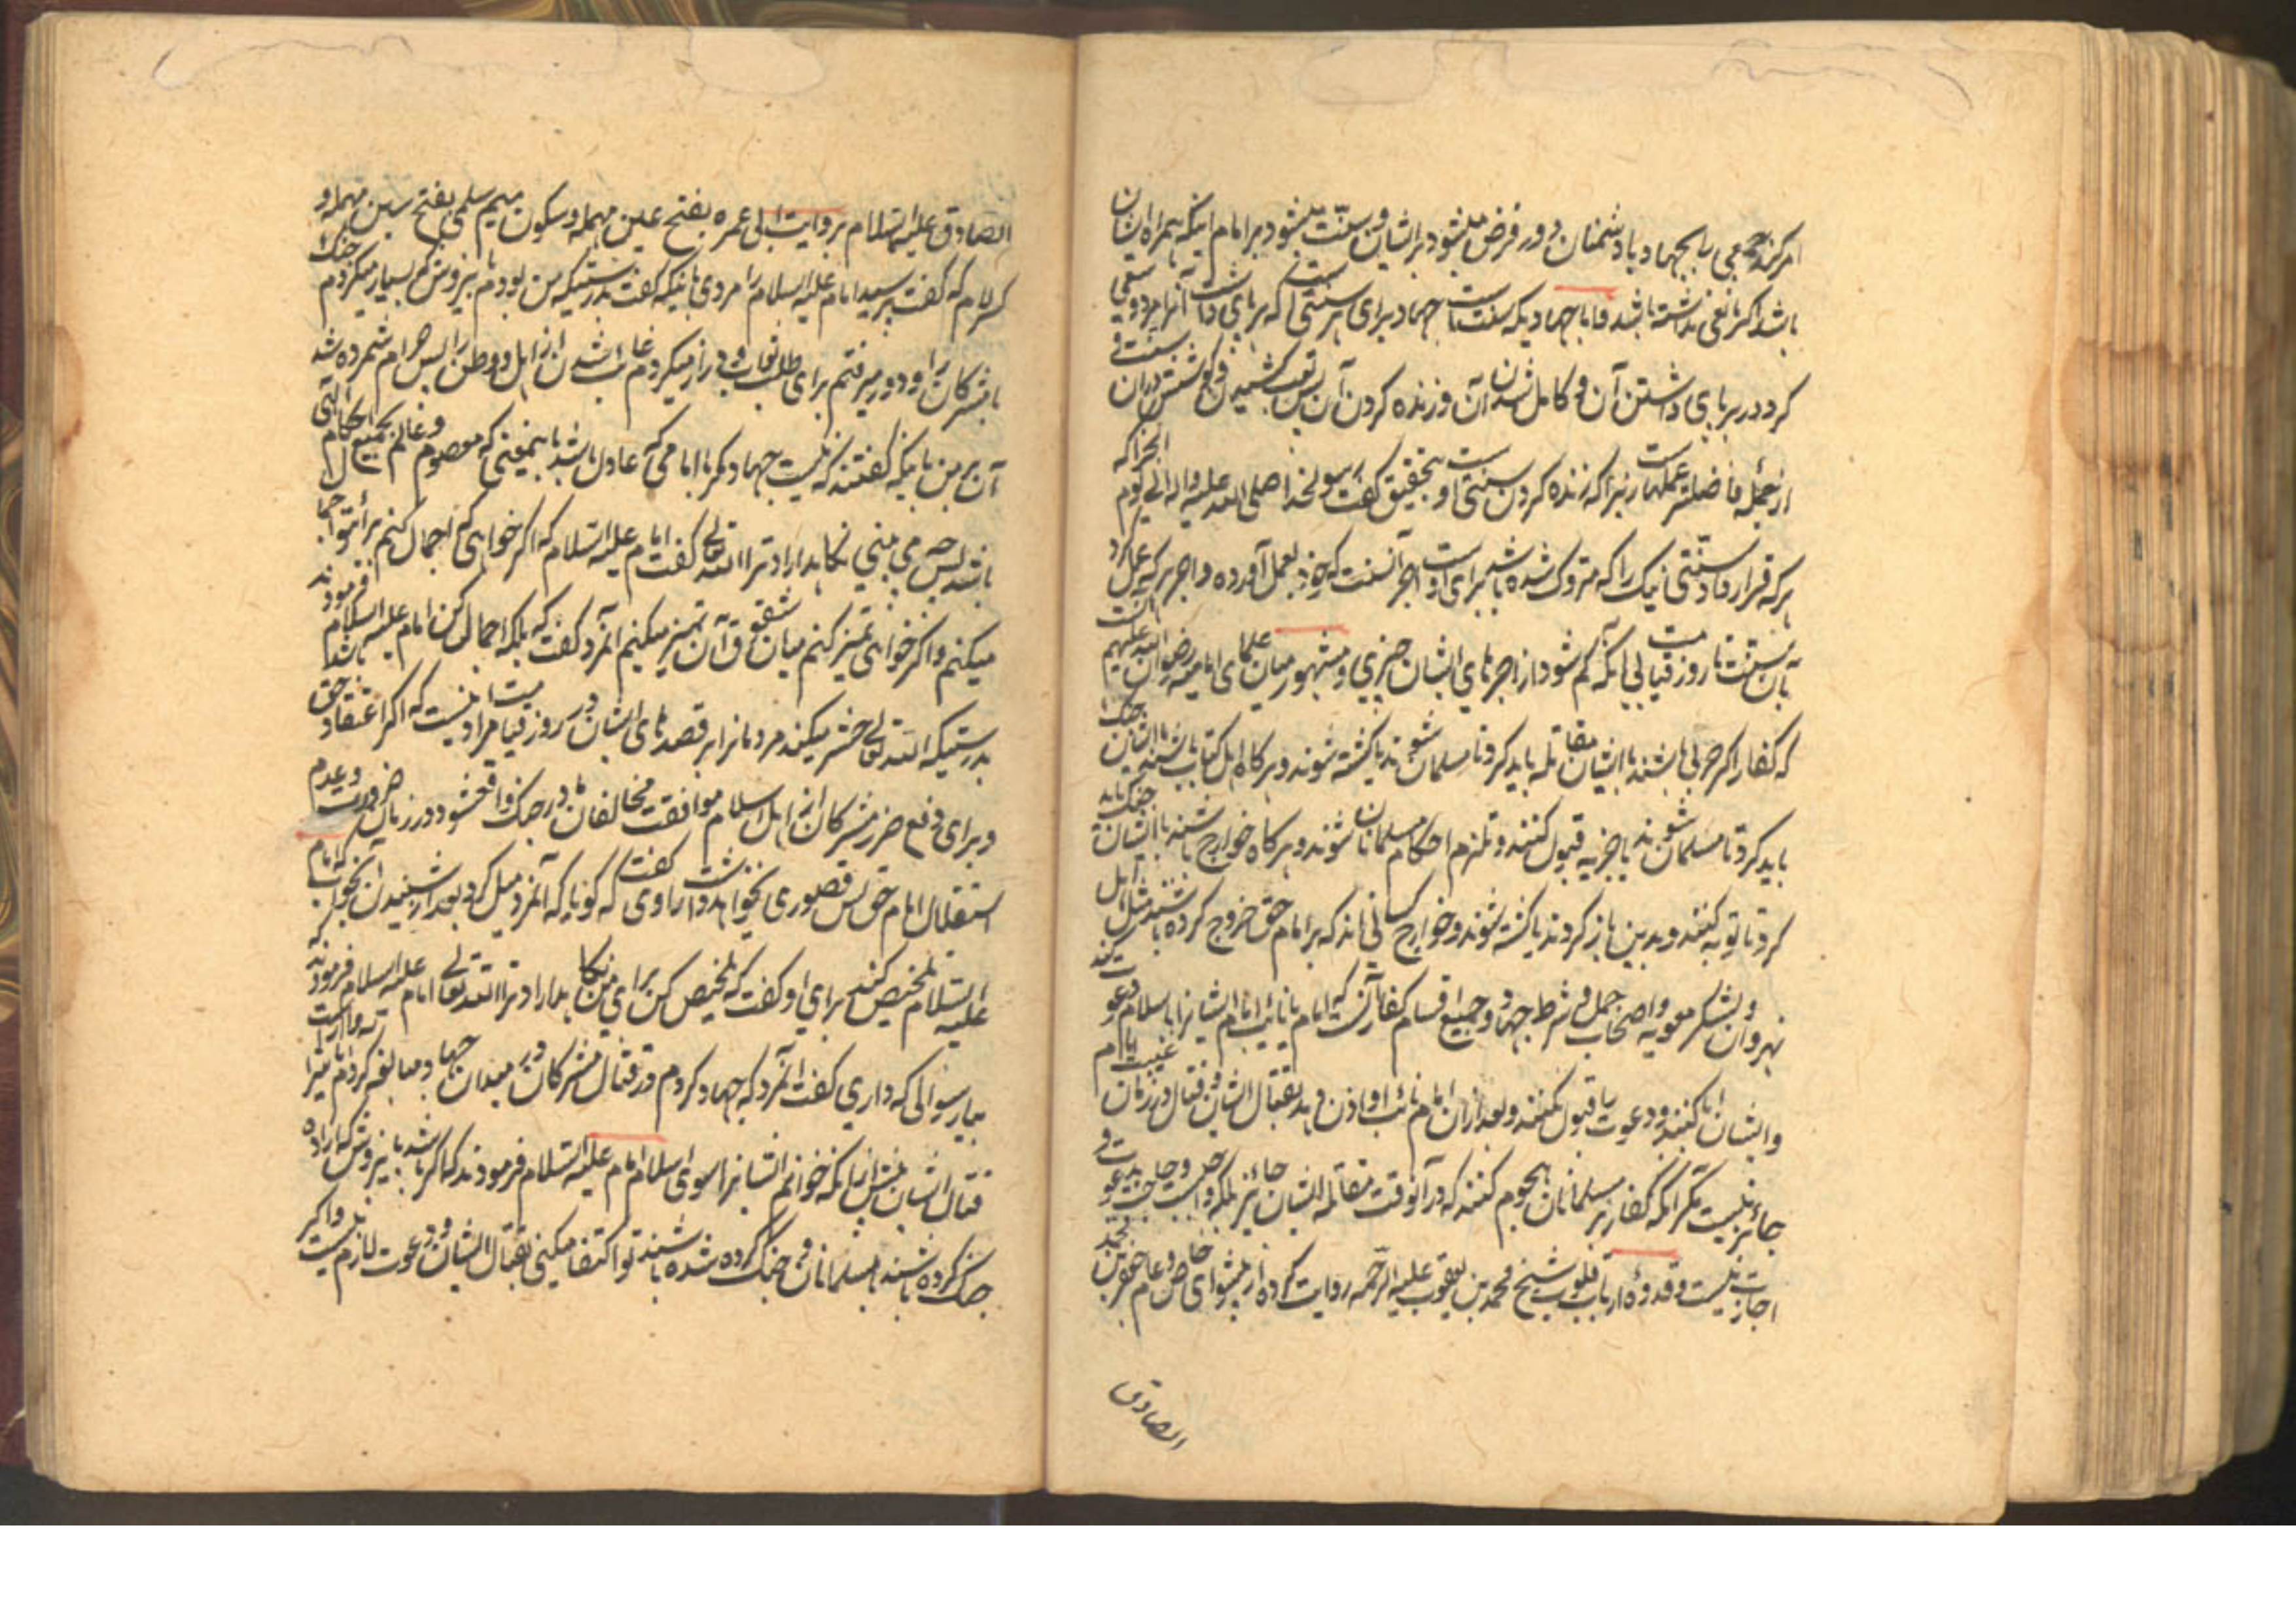 امر کند جمعی را بجهاد با دشمنان و در فرض میشود بر ایشان و سنت میشود بر امام اینکه همراه ایشان
باشد اگر مانعی نداشته باشد و اما جهادیکه سنت است جهاد برای هر سنتی که برپای داشت آنرا مرد و سعی
کرد در برپای داشتن آن و کامل شدن آن و زنده کردن آن پس تعب کشیدن و کوشش در آن
از جمله فاضلتر عملهاست زیرا که زنده کردن سنتی است و بتحقیق گفت رسولخدا صلی الله علیه و اله
هر که قرار داد سنتی نیک را که متروک شده باشد برای اوست اجر آنسنت که خود بعمل آورده و اجر هر که عمل کرد
بآن سنت تا روز قیامت بی آنکه کم شود از اجرهای ایشان چیزی و مشهور میان علمای امامیه رضوان الله علیهم آنست
که کفار اگر حربی باشند با ایشان مقاتله باید کرد تا مسلمان شوند یا کشته شوند و هرگاه اهل کتاب باشند با ایشان جنگ
باید کرد تا مسلمان شوند یا جزیه قبول کنند و ملتزم احکام مسلمانان شوند و هرگاه خوارج باشند با ایشان جنگ باید
کرد تا توبه کنند و بدین باز گردند یا کشته شوند و خوارج کسانی اند که بر امام حق خروج کرده باشند مثل اهل
نهروان و لشکر معویه و اصحاب جمل و شرط جهاد جمیع اقسام کفار آنست که امام یا نائب امام ایشانرا باسلام دعوت کند
و ایشان ابا کنند و دعوت را قبول نکنند و بعد از آن امام یا نائب او اذن دهد بقتال ایشان و قتال در زمان غیبت امام
جائز نیست مگر آنکه کفار بر مسلمانان هجوم کنند که در آنوقت مقاتله ایشان جائز بلکه واجب است و حاجت بدعوت و
اجازت نیست و قدوهٔ ارباب قلوب شیخ محمد بن یعقوب علیه الرحمه روایت کرده از پیشوای خاص و عام جعفر بن محمد
الصادق
الصادق علیهما السلام بروایت ابی عمره بفتح عین مهمله و سکون میم سلمی بفتح سین مهمله و
لام که گفت پرسید امام علیه السلام را مردی باینکه گفت بدرستیکه من بودم که بسیار میکردم جنگ
با مشرکان را و دور میرفتم برای طلب ثواب و دراز میکردم غائب شدن از اهل و وطن را پس حرام شمرده شد
آن بر من باینکه گفتند که نیست جهاد مگر با امامی که عادل باشد باینمعنی که معصوم و عالم بجمیع احکام الهی
باشد پس چه می بینی نگاهدارد ترا الله تعالی گفت امام علیه السلام که اگر خواهی که اجمال کنم برای تو اجمال
میکنم و اگر خواهی تمیز کنم میان شقوق آن تمیز میکنم آنمرد گفت که بلکه اجمال کن امام علیه السلام فرمودند
بدرستیکه الله تعالی حشر میکند مردمانرا بر قصدهای ایشان در روز قیامت مراد اینست که اگر اعتقاد حق باشد
و برای دفع ضرر مشرکان از اهل اسلام موافقت مخالفان در جنگ واقع شود در زمان ضرورت و عدم
استقلال امام حق پس قصوری نخواهد داشت راوی گفت که گویا که آنمرد میل کرد بعد از شنیدن جواب که امام
علیه السلام تلخیص کند برای او گفت که تلخیص کن برای من نگاه بدارد ترا الله تعالی امام علیه السلام فرمودند
بیار سوالی که داری گفت آنمرد که جهاد کردم در قتال مشرکان در میدان جهاد و مبالغه کردم
قتال ایشان پیش از آنکه خوانم ایشانرا سوی اسلام امام علیه السلام فرمودند که اگر
جنگ کرده باشند با مسلمانان و جنگ کرده شده باشند تو اکتفا میکنی بقتال ایشان و دعوت لازم نیست و اگر